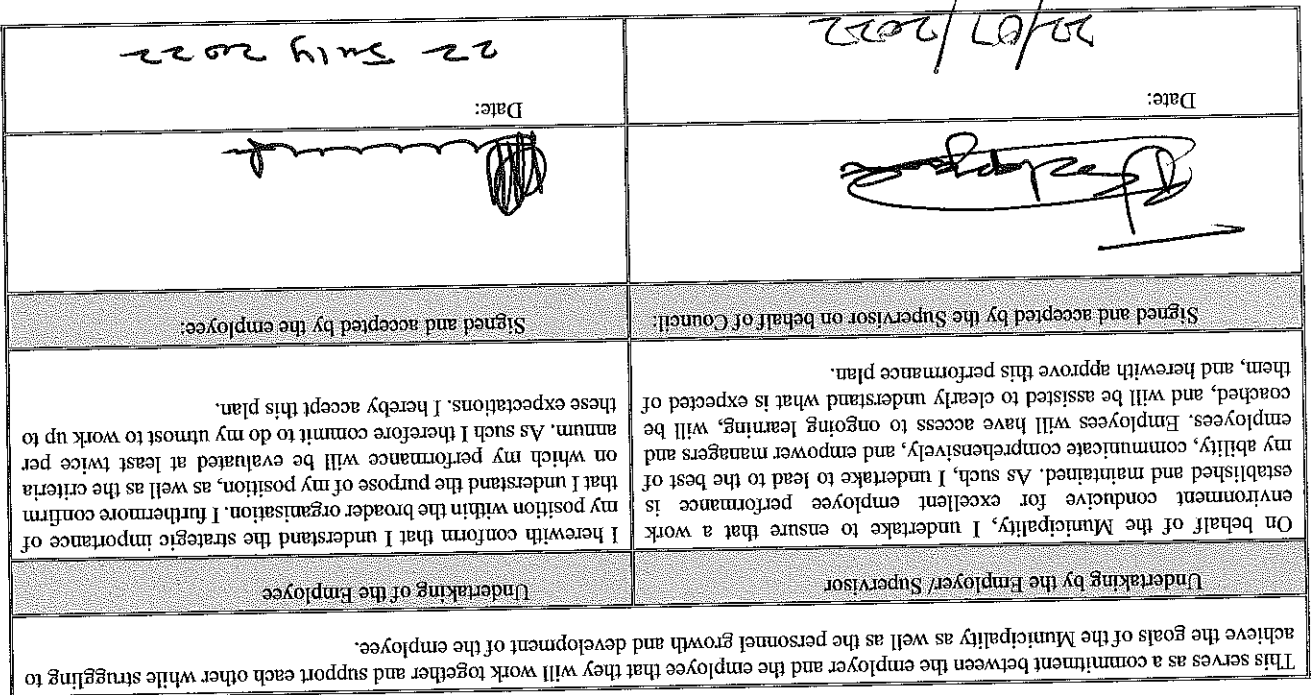 This serves as a commitment between the employer and the employee that they will work together and support each other while struggling to
achieve the goals of the Municipality as well as the personnel growth and development of the employee.
Undertaking by the Employer/ Supervisor
Undertaking of the Employee
On behalf of the Municipality, I undertake to ensure that a work
environment conducive for excellent employee performance is
established and maintained. As such, I undertake to lead to the best of
my ability, communicate comprehensively, and empower managers and
employees. Employees will have access to ongoing learning, will be
coached, and will be assisted to clearly understand what is expected of
them, and herewith approve this performance plan.
I herewith conform that I understand the strategic importance of
my position within the broader organisation. I furthermore confirm
that I understand the purpose of my position, as well as the criteria
on which my performance will be evaluated at least twice per
annum. As such I therefore commit to do my utmost to work up to
these expectations. I hereby accept this plan.
Signed and accepted by the Supervisor on behalf of Council:
Signed and accepted by the employee:
Date:
22/07/2022
Date:
22 July 2022